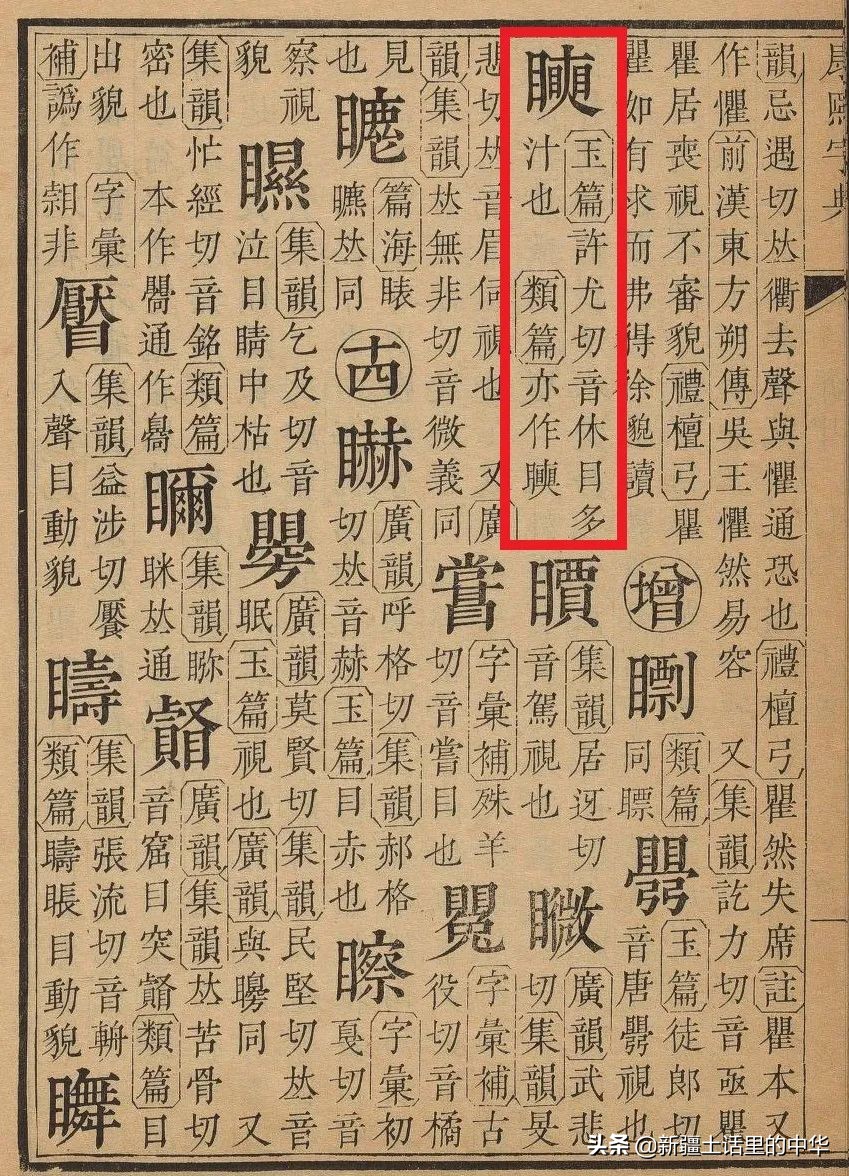 康熙字典
韻忌遇切𠀤衢去聲與懼通恐也禮檀弓瞿然失席註瞿本又
作懼前漢東方朔傳吳王懼然易容 又集韻訖力切音亟瞿
瞿居喪視不審貌禮檀弓瞿
瞿如有求而弗得徐邈讀
增
類篇
同瞟
玉篇徒郎切
音唐視也
玉篇許尤切音休目多
汁也 類篇亦作
集韻居迓切
音駕視也
矀
廣韻武悲
切集韻旻
悲切𠀤音眉伺視也 又廣
韻集韻𠀤無非切音微義同
字彙補殊羊
切音嘗目也
字彙補古
役切音橘
見
也
篇海
𠀤同
十四
廣韻呼格切集韻郝格
切𠀤音赫玉篇目赤也
字彙初
戛切音
察視
貌
集韻乞及切音
泣目睛中枯也
矏
廣韻莫賢切集韻民堅切𠀤音
眠玉篇視也廣韻與矊同 又
集韻忙經切音銘類篇
密也 本作通作
集韻
眯𠀤通
廣韻集韻𠀤苦骨切
音窟目突類篇目
出貌 字彙
補譌作非
集韻益涉切魘
入聲目動貌
集韻張流切音輈
類篇目動貌
头条 @新疆土话里的中华